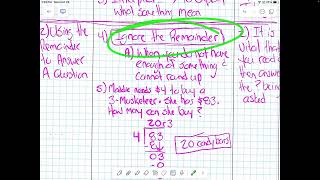 what something mean
2) Using the
Remainder
to Answer
A Question
4) Ignore the Remainder!
A) When you do not have
enough of something -
cannot round up
5) Maddie needs $4 to buy a
3-Musketeer. She has $83.
How many can she buy?
20r3
4 83
03
-0
20 candy bars
2) It is
vital that
you read
then answer
the ? being
asked